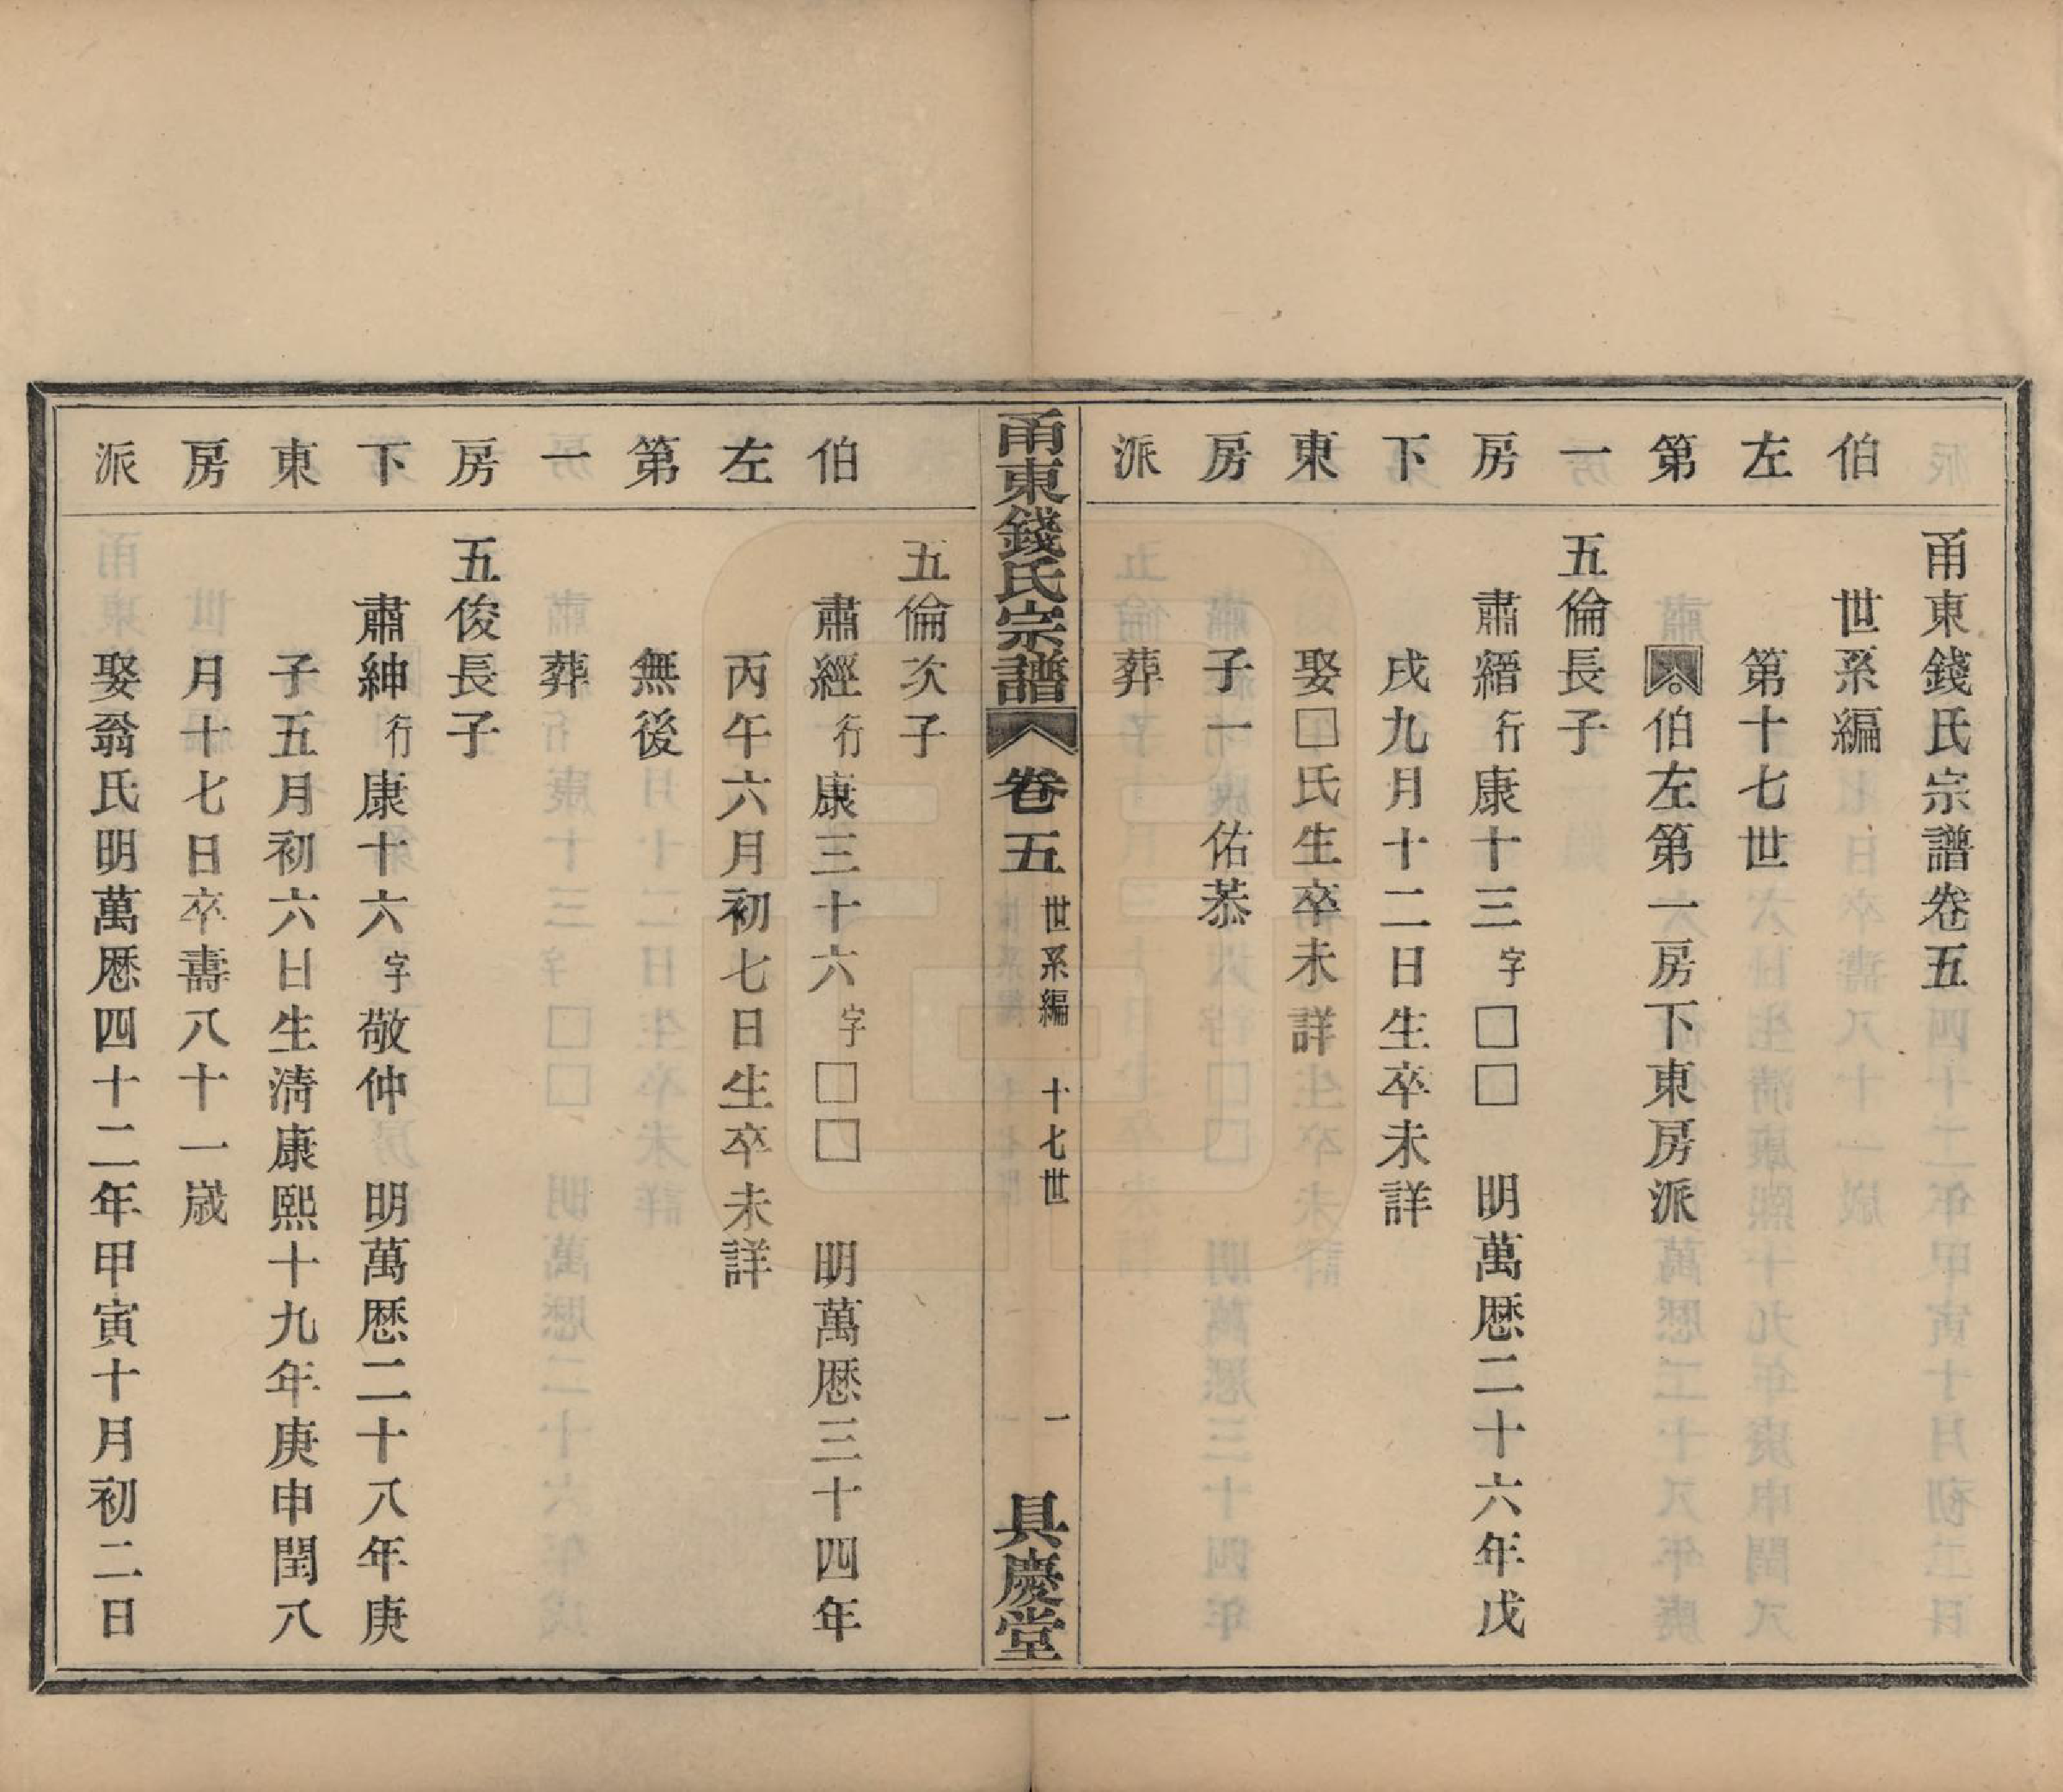 伯左第一房下東房派
甬東錢氏宗譜卷五
世系編
第十七世
伯左第一房下東房派
五倫長子
肅縉行康十三字□□ 明萬曆二十六年戊
戌九月十二日生卒未詳
娶□氏生卒未詳
子一 佑恭
葬
甬東錢氏宗譜 卷五 世系編 十七世 一 具慶堂
伯左第一房下東房派
五倫次子
肅經行康三十六字□□ 明萬曆三十四年
丙午六月初七日生卒未詳
無後
葬
五俊長子
肅紳行康十六字敬仲 明萬曆二十八年庚
子五月初六日生清康熙十九年庚申閏八
月十七日卒壽八十一歲
娶翁氏明萬曆四十二年甲寅十月初二日